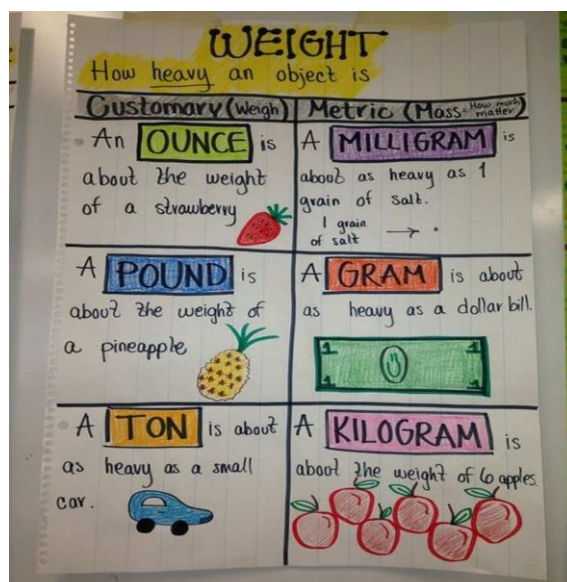 WEIGHT
How heavy an object is
Customary (Weigh)
Metric (Mass= How much matter)
An OUNCE is
about the weight
of a strawberry
A MILLIGRAM is
about as heavy as 1
grain of salt.
1 grain
of salt →
A POUND is
about the weight of
a pineapple
A GRAM is about
as heavy as a dollar bill.
1 1
1 1
A TON is about
as heavy as a small
car.
A KILOGRAM is
about the weight of 6 apples.